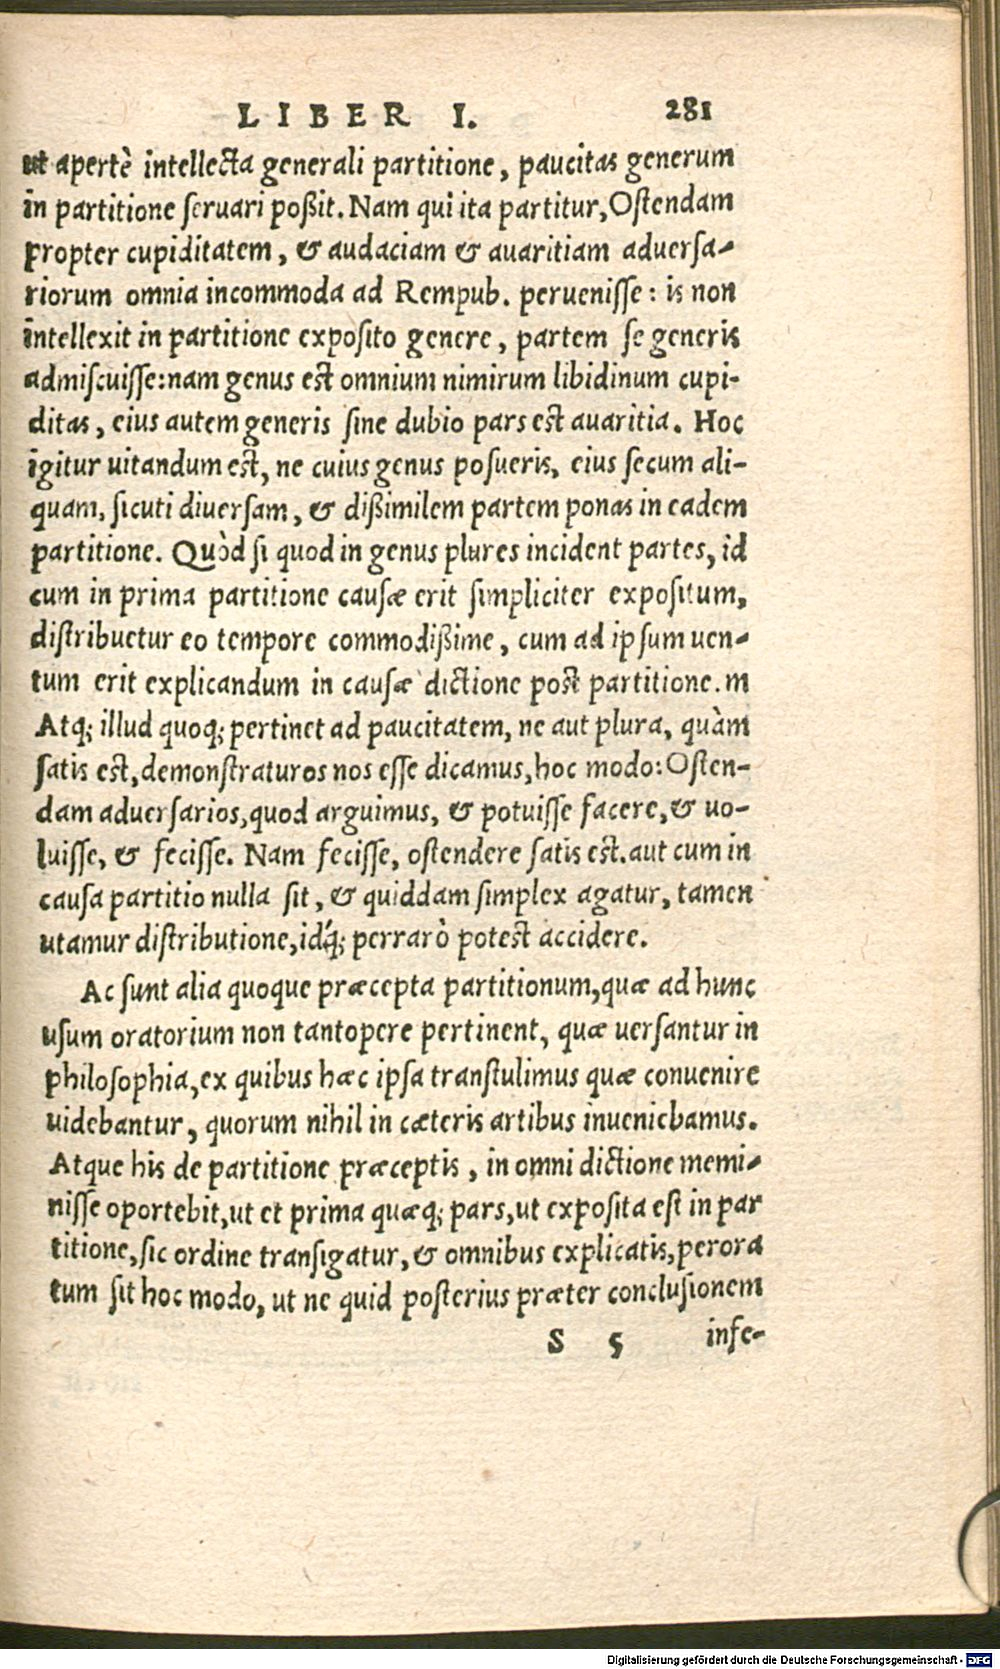 LIBER I. 281
ut apertè intellecta generali partitione, paucitas generum
in partitione seruari poßit. Nam qui ita partitur, Ostendam
propter cupiditatem, & audaciam & auaritiam aduersa-
riorum omnia incommoda ad Rempub. peruenisse: is non
intellexit in partitione exposito genere, partem se generis
admiscuisse: nam genus est omnium nimirum libidinum cupi-
ditas, eius autem generis sine dubio pars est auaritia. Hoc
igitur uitandum est, ne cuius genus posueris, eius secum ali-
quam, sicuti diuersam, & dißimilem partem ponas in eadem
partitione. Quòd si quod in genus plures incident partes, id
cum in prima partitione causæ erit simpliciter expositum,
distribuetur eo tempore commodißime, cum ad ipsum uen-
tum erit explicandum in causæ dictione post partitione.m
Atq; illud quoq; pertinet ad paucitatem, ne aut plura, quàm
satis est, demonstraturos nos esse dicamus, hoc modo: Osten-
dam aduersarios, quod arguimus, & potuisse facere, & uo-
luisse, & fecisse. Nam fecisse, ostendere satis est. aut cum in
causa partitio nulla sit, & quiddam simplex agatur, tamen
utamur distributione, idq́; perrarò potest accidere.
Ac sunt alia quoque præcepta partitionum, quæ ad hunc
usum oratorium non tantopere pertinent, quæ uersantur in
philosophia, ex quibus hæc ipsa transtulimus quæ conuenire
uidebantur, quorum nihil in cæteris artibus inueniebamus.
Atque his de partitione præceptis, in omni dictione memi-
nisse oportebit, ut et prima quæq; pars, ut exposita est in par
titione, sic ordine transigatur, & omnibus explicatis, perora
tum sit hoc modo, ut ne quid posterius præter conclusionem
S 5 infe-
Digitalisierung gefördert durch die Deutsche Forschungsgemeinschaft - DFG